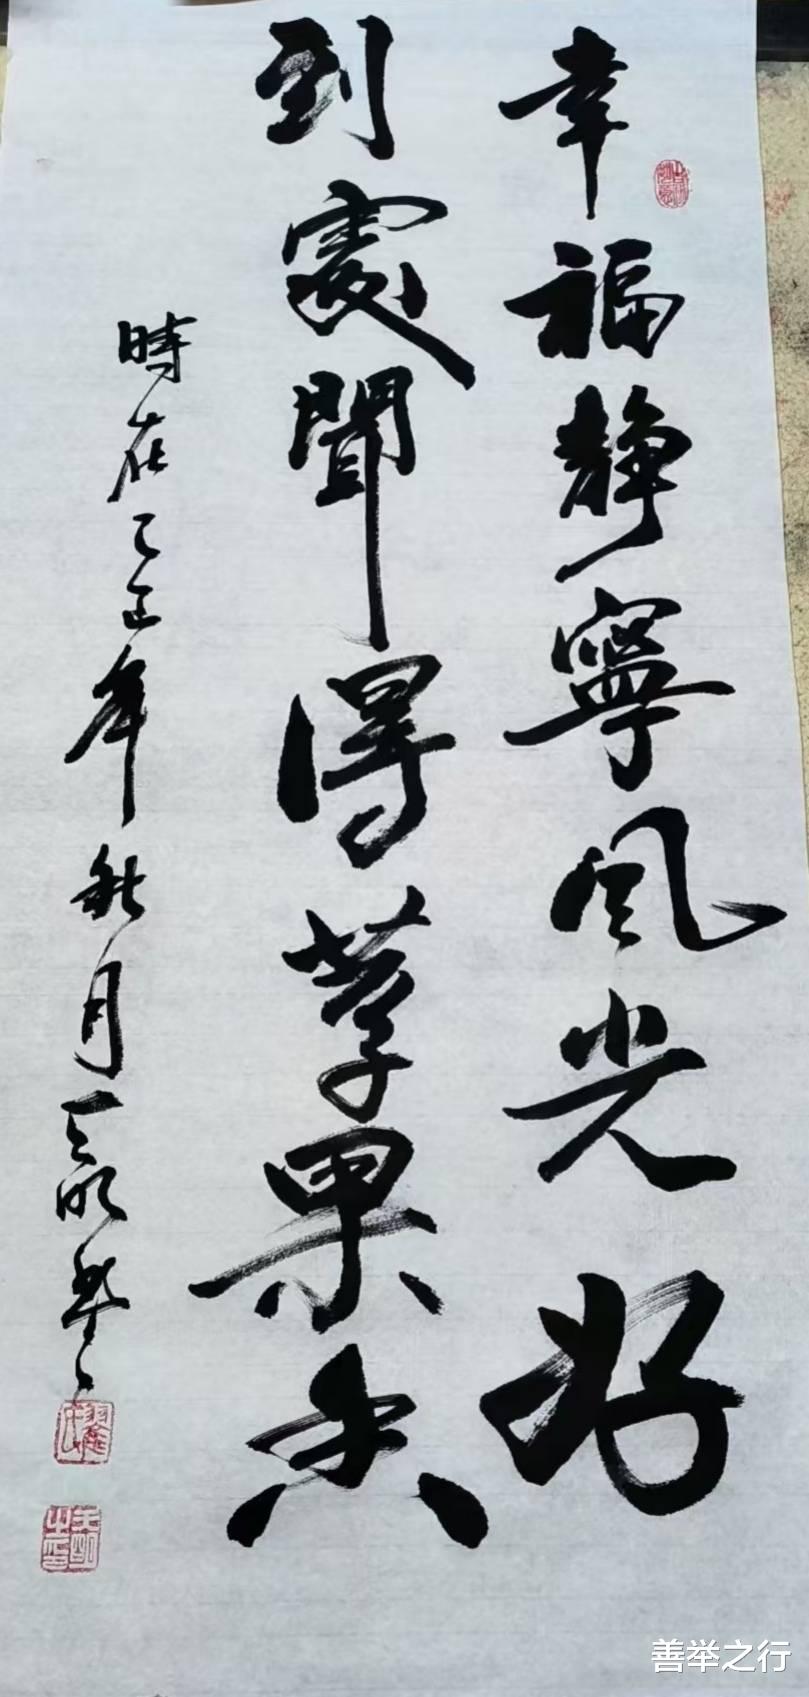 幸福静寧風光好
到處聞得苹果香
時在乙巳年秋月王明
善举之行